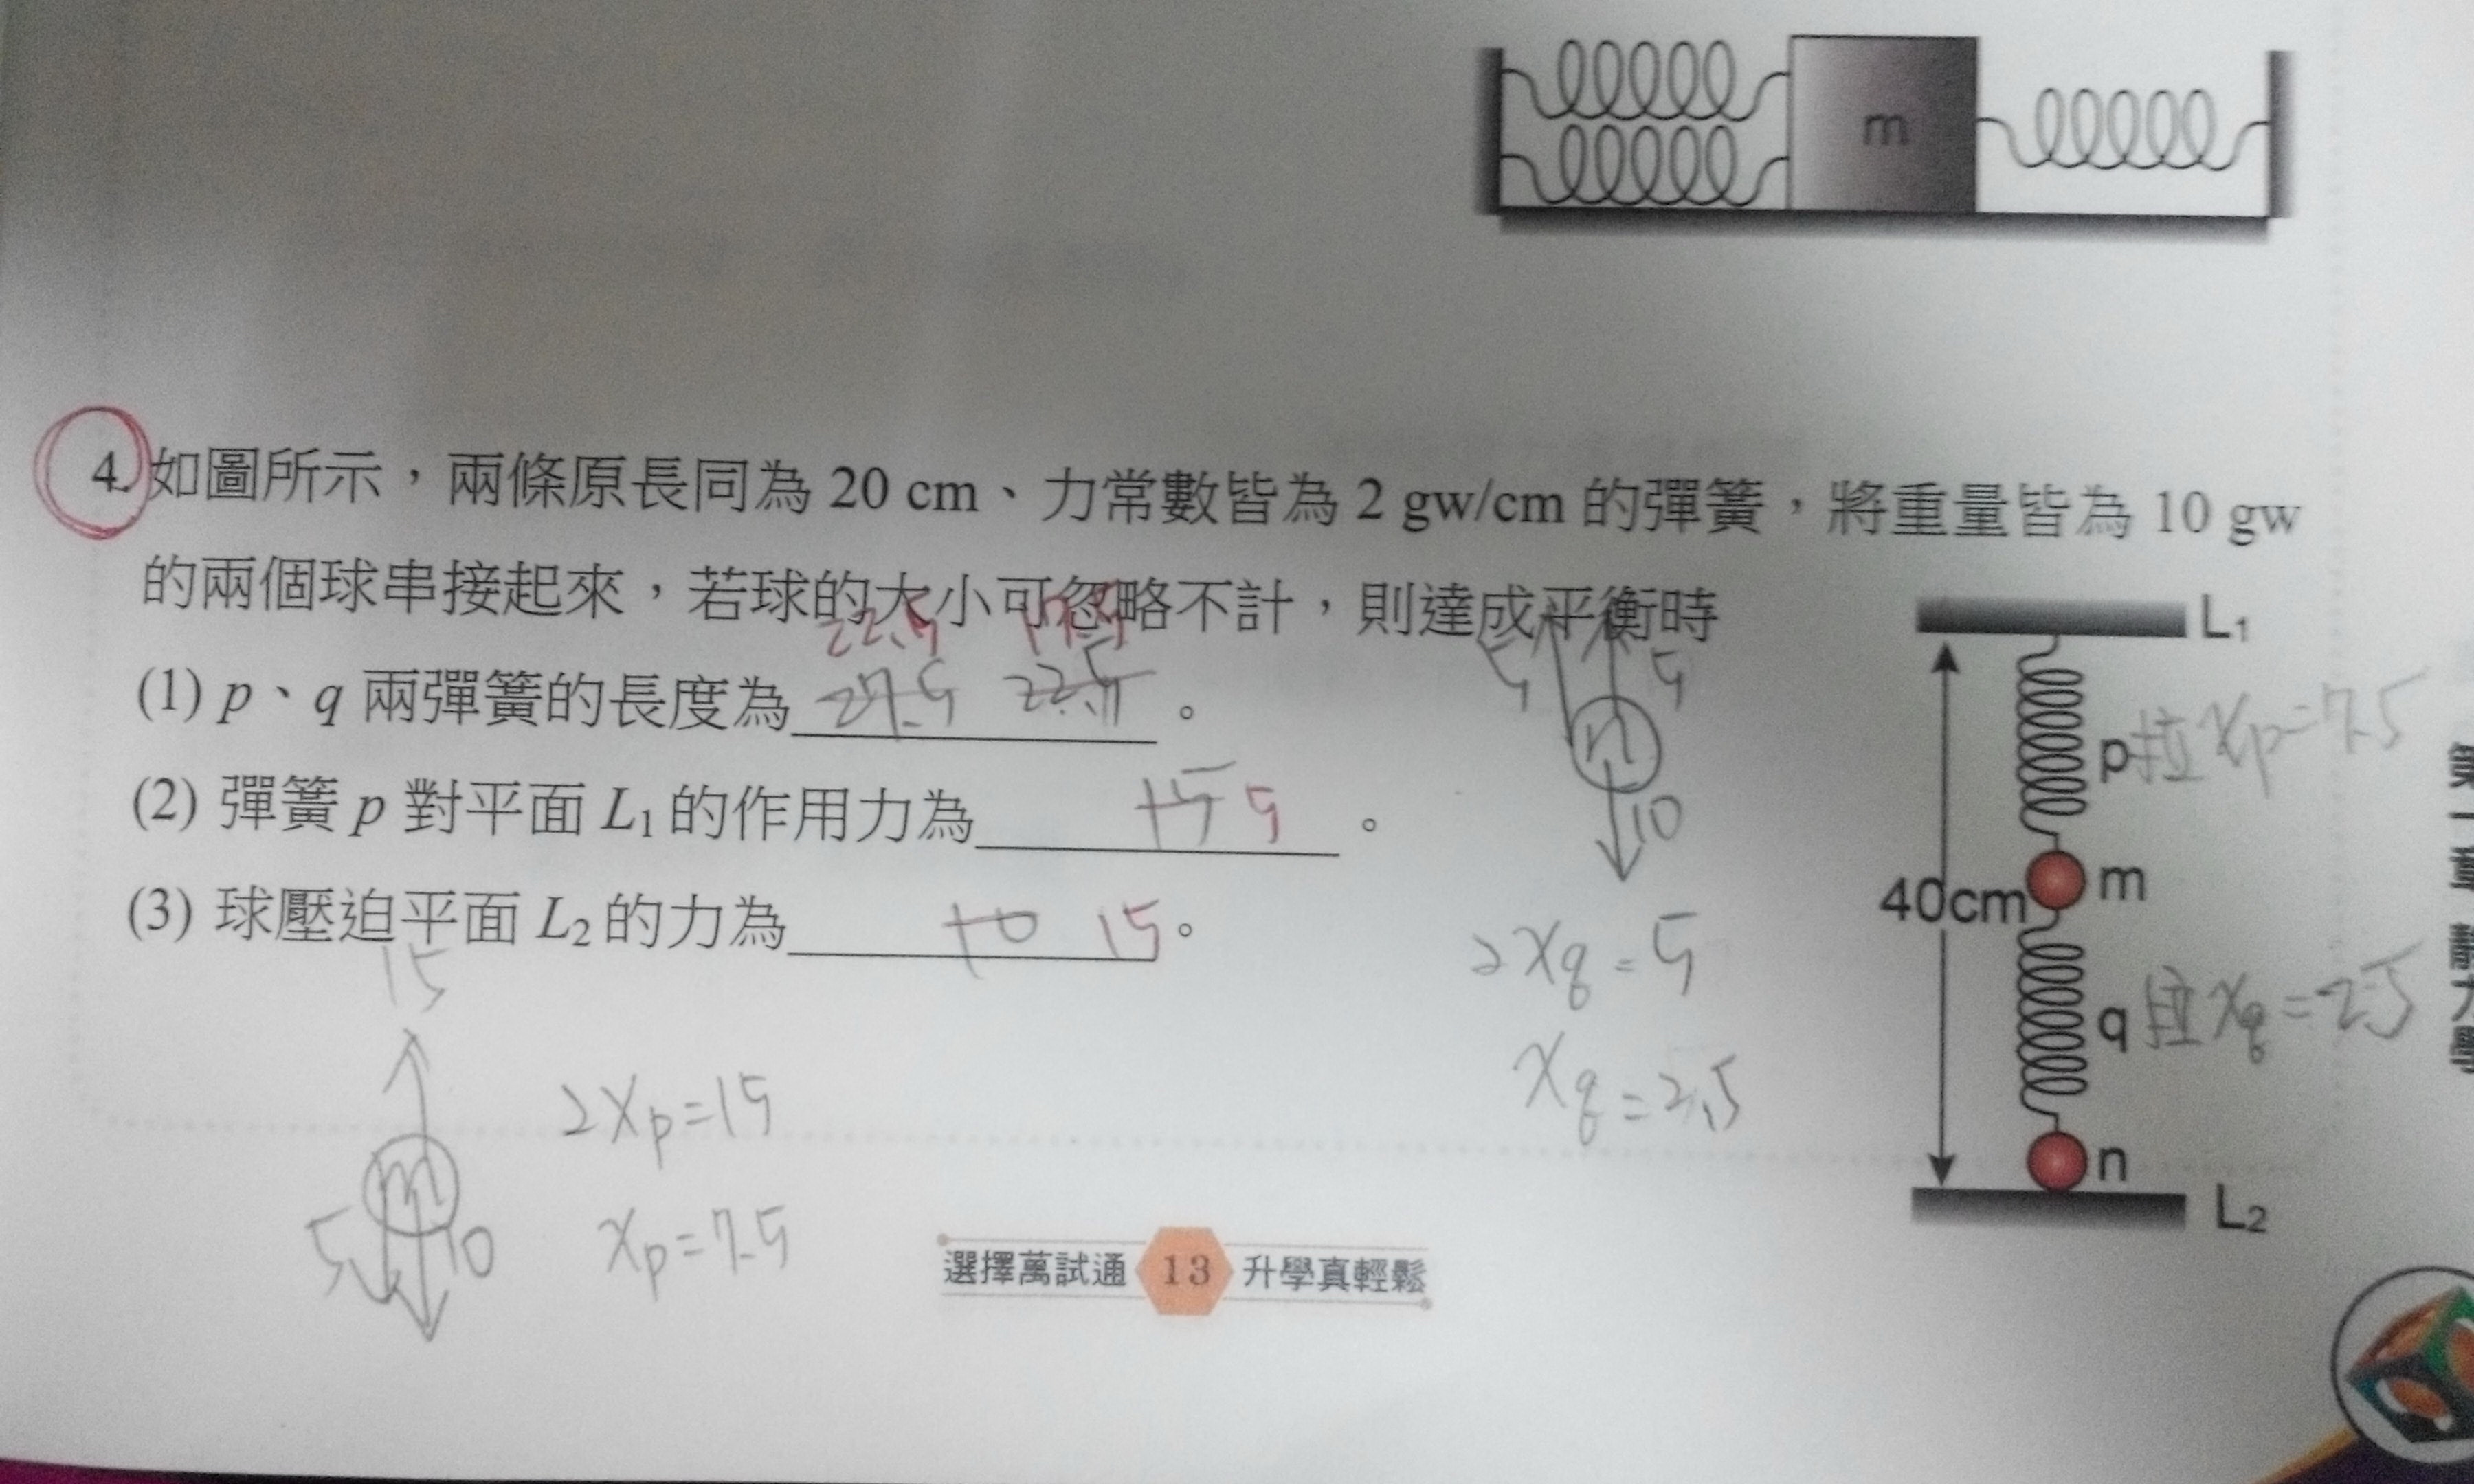 m
4. 如圖所示，兩條原長同為 20 cm、力常數皆為 2 gw/cm 的彈簧，將重量皆為 10 gw
的兩個球串接起來，若球的大小可忽略不計，則達成平衡時
22.5 17.5
(1) p、q 兩彈簧的長度為 27.5 22.5 。
(2) 彈簧 p 對平面 L1 的作用力為 15 5 。
(3) 球壓迫平面 L2 的力為 10 15 。
5 5
n
10
2xq = 5
xq = 2.5
15
m
5 10
2xp = 15
xp = 7.5
L1
p 拉 xp = 7.5
m
40cm
q 拉 xq = 2.5
n
L2
第一章 靜力學
選擇萬試通 13 升學真輕鬆